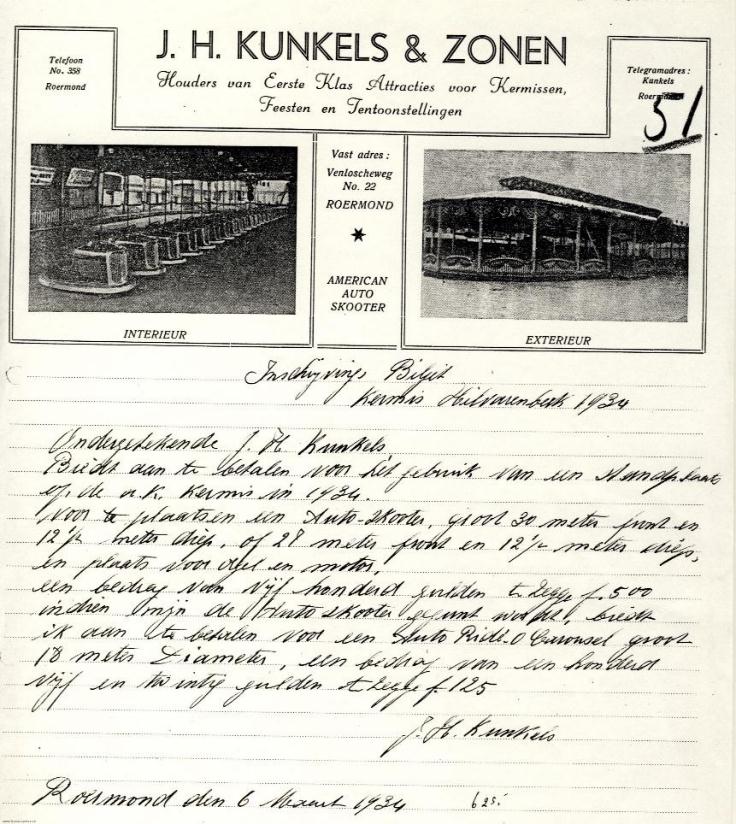 J. H. KUNKELS & ZONEN
Houders van Eerste Klas Attracties voor Kermissen,
Feesten en Tentoonstellingen
Telefoon
No. 358
Roermond
Telegramadres:
Kunkels
Roermond
51
Vast adres:
Venloscheweg
No. 22
ROERMOND
AMERICAN
AUTO
SKOOTER
INTERIEUR
EXTERIEUR
Inschrijvings Biljet
Kermis Hilvarenbeek 1934
Ondergetekende J. H. Kunkels,
Biedt aan te betalen voor het gebruik van een standplaats
op de a.k. Kermis in 1934.
voor te plaatsen een Auto-Skooter, groot 30 meter front en
12½ meter diep, of 28 meter front en 12½ meter diep,
en plaats voor en motor,
een bedrag van vijf honderd gulden te zegge f. 500
indien mijn de Auto skooter gegunt wordt, biedt
ik aan te betalen voor een Auto Ride O Carousel groot
18 meter Diameter, een bedrag van een honderd
vijf en twintig gulden te zegge f 125
J. H. Kunkels
Roermond den 6 Maart 1934 625.